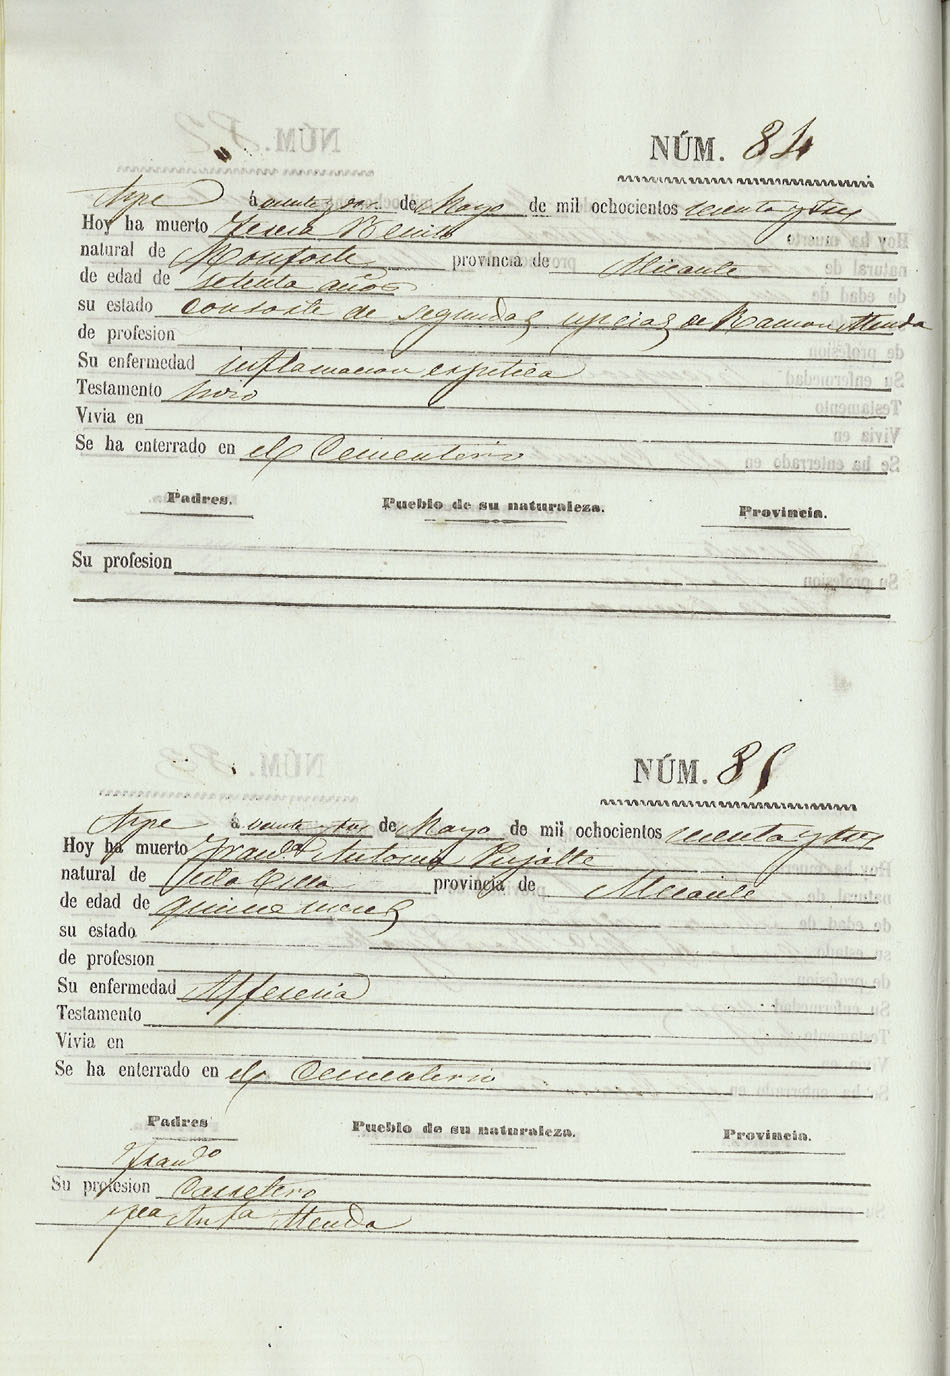 NÚM. 84
Aspe á veinte y dos de Mayo de mil ochocientos sesenta y tres
Hoy ha muerto Teresa Benito
natural de Monforte provincia de Alicante
de edad de setenta años
su estado consorte de segundas nupcias de Ramon Almodo
de profesion
Su enfermedad inflamacion
Testamento hizo
Vivia en
Se ha enterrado en el Cementerio
Padres. Pueblo de su naturaleza. Provincia.
Su profesion
NÚM. 85
Aspe á veinte y tres de Mayo de mil ochocientos sesenta y tres
Hoy ha muerto Antonia Pujalte
natural de esta Villa provincia de Alicante
de edad de quince meses
su estado
de profesion
Su enfermedad Alferecia
Testamento
Vivia en
Se ha enterrado en el Cementerio
Padres Pueblo de su naturaleza. Provincia.
Franco
Su profesion Carretero